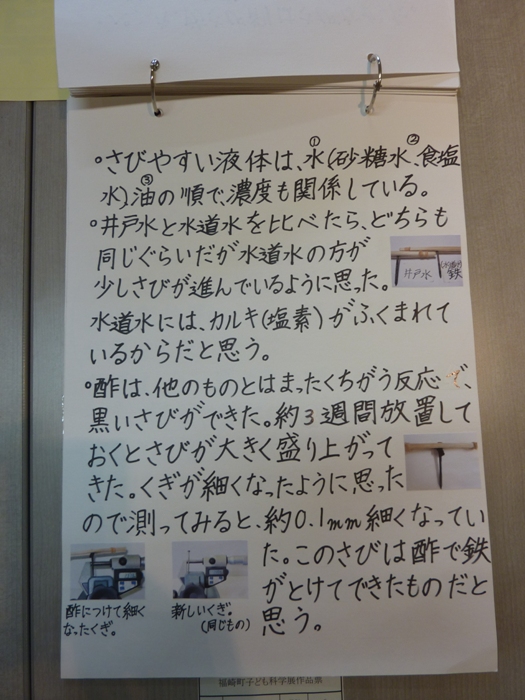 ①　②
・さびやすい液体は、水(砂糖水、食塩
③
水)油の順で、濃度も関係している。
・井戸水と水道水を比べたら、どちらも
同じぐらいだが水道水の方が
少しさびが進んでいるように思った。
井戸水
鉄
水道水には、カルキ(塩素)がふくまれて
いるからだと思う。
・酢は、他のものとはまったくちがう反応で、
黒いさびができた。約3週間放置して
おくとさびが大きく盛り上がって
きた。くぎが細くなったように思った
ので測ってみると、約0.1mm細くなってい
た。このさびは酢で鉄
がとけてできたものだと
思う。
酢につけて細く
なったくぎ。
新しいくぎ。
(同じもの)
福崎町子ども科学展作品票